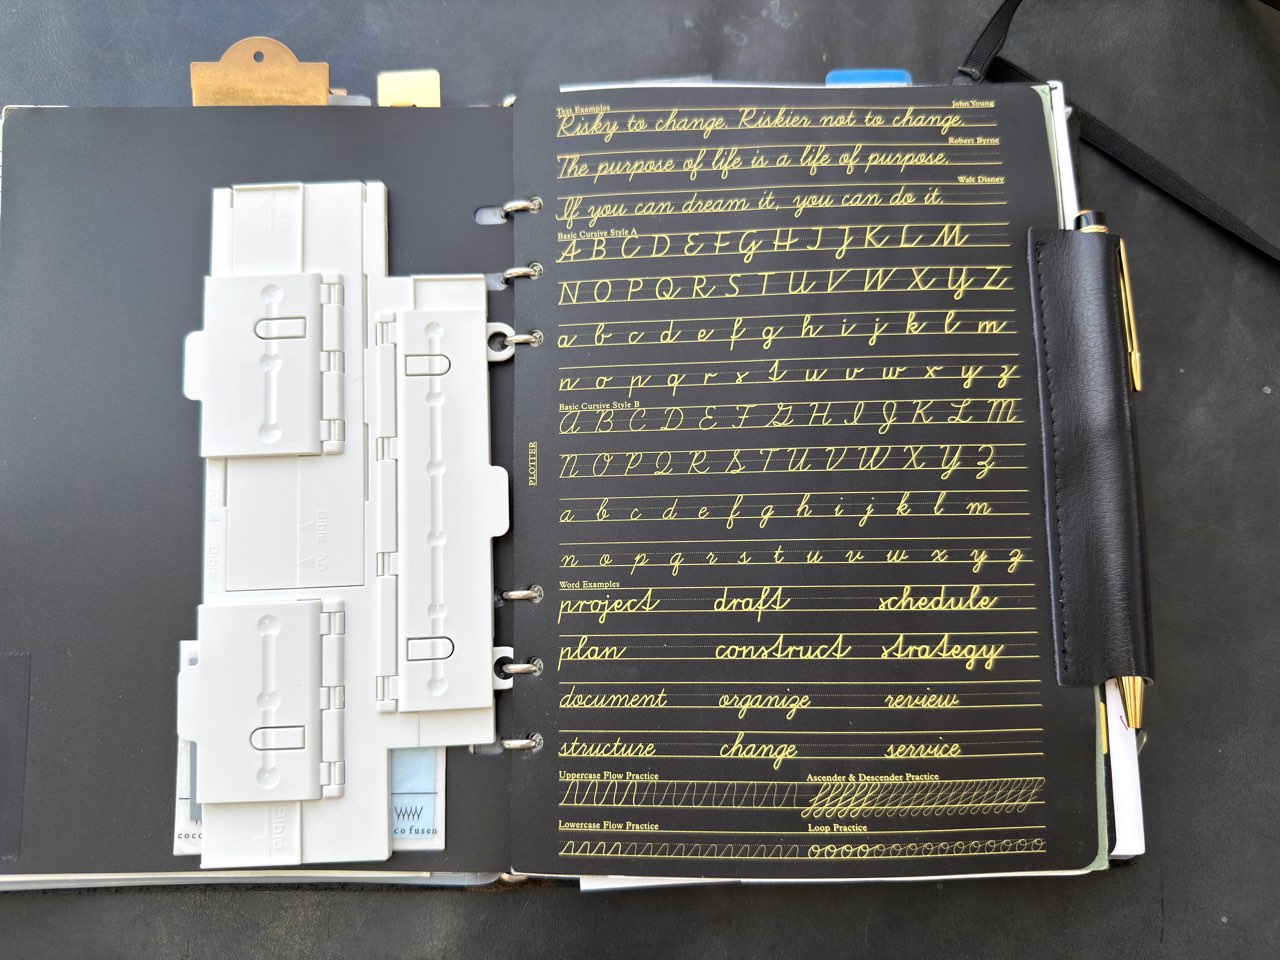 Text Examples
John Young
Risky to change. Riskier not to change.
Robert Byrne
The purpose of life is a life of purpose.
Walt Disney
If you can dream it, you can do it.
Basic Cursive Style A
A B C D E F G H I J K L M
N O P Q R S T U V W X Y Z
a b c d e f g h i j k l m
n o p q r s t u v w x y z
Basic Cursive Style B
A B C D E F G H I J K L M
N O P Q R S T U V W X Y Z
a b c d e f g h i j k l m
n o p q r s t u v w x y z
Word Examples
project draft schedule
plan construct strategy
document organize review
structure change service
Uppercase Flow Practice
Ascender & Descender Practice
Lowercase Flow Practice
Loop Practice
PLOTTER
A5
A5
Bible
Bible A5
Bible
coco
co fusen